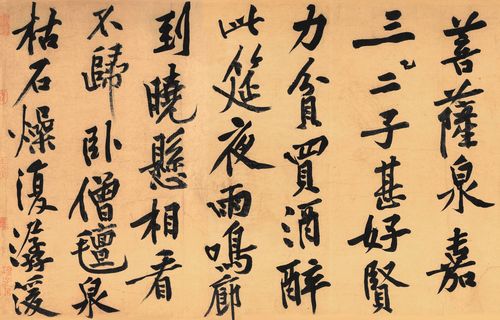 菩薩泉嘉
三二子甚好賢
力貧買酒醉
此筵夜雨鳴廊
到曉懸相看
不歸臥僧氊泉
枯石燥復潺湲